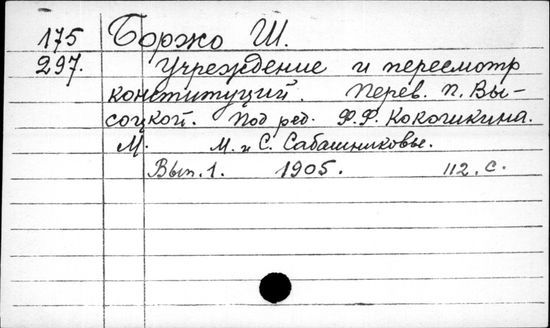 175 Боржо Ш.
297. Учреждение и пересмотр
конституций. Перев. П. Вы-
соцкой. Под ред. Ф.Ф. Кокошкина.
М. М. и С. Сабашниковы.
Вып. 1. 1905. 112. с.